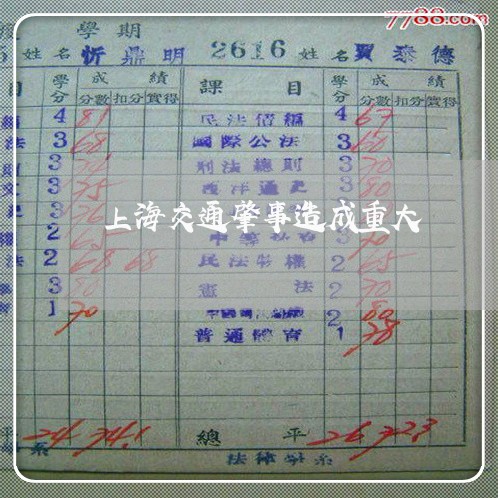 7788.com
度 學期
姓名 忻鼎明 2616 姓名 賈泰德
目 學分 成績 分數 扣分 實得 課目 學分 成績 分數 扣分 實得
4 81 民法債編 4 67
法 3 68 國際公法 3 60
則 3 刑法總則 3 70
3 75 西洋通史 3 80
史 3 76
上海交通肇事造成重大
權 2 65 3 70
法 2 68 68 民法物權 2 65
3 80 憲法 2 70
育 1 70 2 80
普通體育 1 78
平 24 74.1 總平 26 72.3
系 法律學系